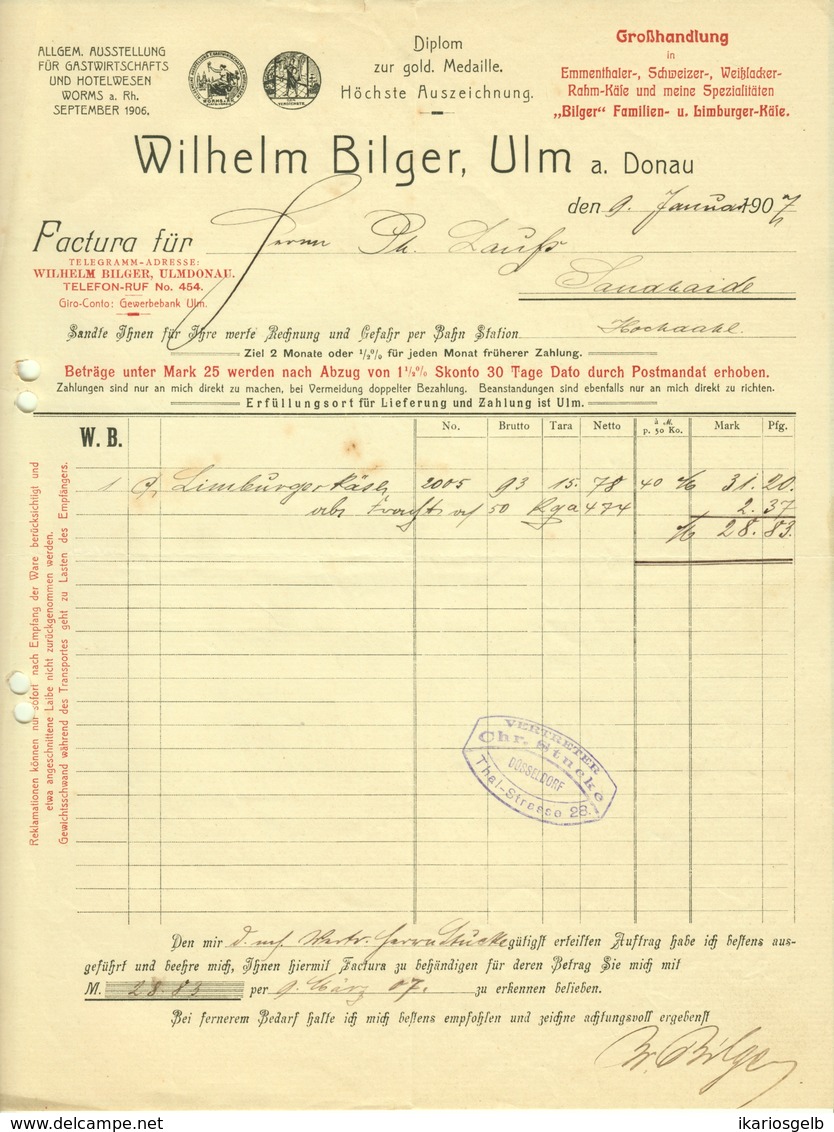 ALLGEM. AUSSTELLUNG
FÜR GASTWIRTSCHAFTS
UND HOTELWESEN
WORMS a. Rh.
SEPTEMBER 1906.
Diplom
zur gold. Medaille.
Höchste Auszeichnung.
Großhandlung
in
Emmenthaler-, Schweizer-, Weißlacker-
Rahm-Käse und meine Spezialitäten
„Bilger" Familien- u. Limburger-Käse.
Wilhelm Bilger, Ulm a. Donau
den 9. Januar 1907
Factura für Herrn Ph. Laufs
TELEGRAMM-ADRESSE:
WILHELM BILGER, ULMDONAU.
TELEFON-RUF No. 454.
Giro-Conto: Gewerbebank Ulm.
Sandhaide
Sandte Ihnen für Ihre werte Rechnung und Gefahr per Bahn Station Hochdahl.
Ziel 2 Monate oder 1/2% für jeden Monat früherer Zahlung.
Beträge unter Mark 25 werden nach Abzug von 1 1/2% Skonto 30 Tage Dato durch Postmandat erhoben.
Zahlungen sind nur an mich direkt zu machen, bei Vermeidung doppelter Bezahlung. Beanstandungen sind ebenfalls nur an mich direkt zu richten.
Erfüllungsort für Lieferung und Zahlung ist Ulm.
W. B. No. Brutto Tara Netto à M. p. 50 Ko. Mark Pfg.
1 Limburgerkäse 2005 93 15. 78 40 M 31. 20.
ab Fracht 50 Kga 474 2. 37
M 28. 83.
Reklamationen können nur sofort nach Empfang der Ware berücksichtigt und
etwa angeschnittene Laibe nicht zurückgenommen werden.
Gewichtsschwand während des Transportes geht zu Lasten des Empfängers.
VERTRETER
Chr. Stucke
DÜSSELDORF
Thal-Strasse 28.
Den mir d. m. Vertr. Herrn Stucke gütigst erteilten Auftrag habe ich bestens aus-
geführt und beehre mich, Ihnen hiermit Factura zu behändigen für deren Betrag Sie mich mit
M. 28.83 per 9. März 07. zu erkennen belieben.
Bei fernerem Bedarf halte ich mich bestens empfohlen und zeichne achtungsvoll ergebenst
W. Bilger
delcampe.net
ikariosgelb